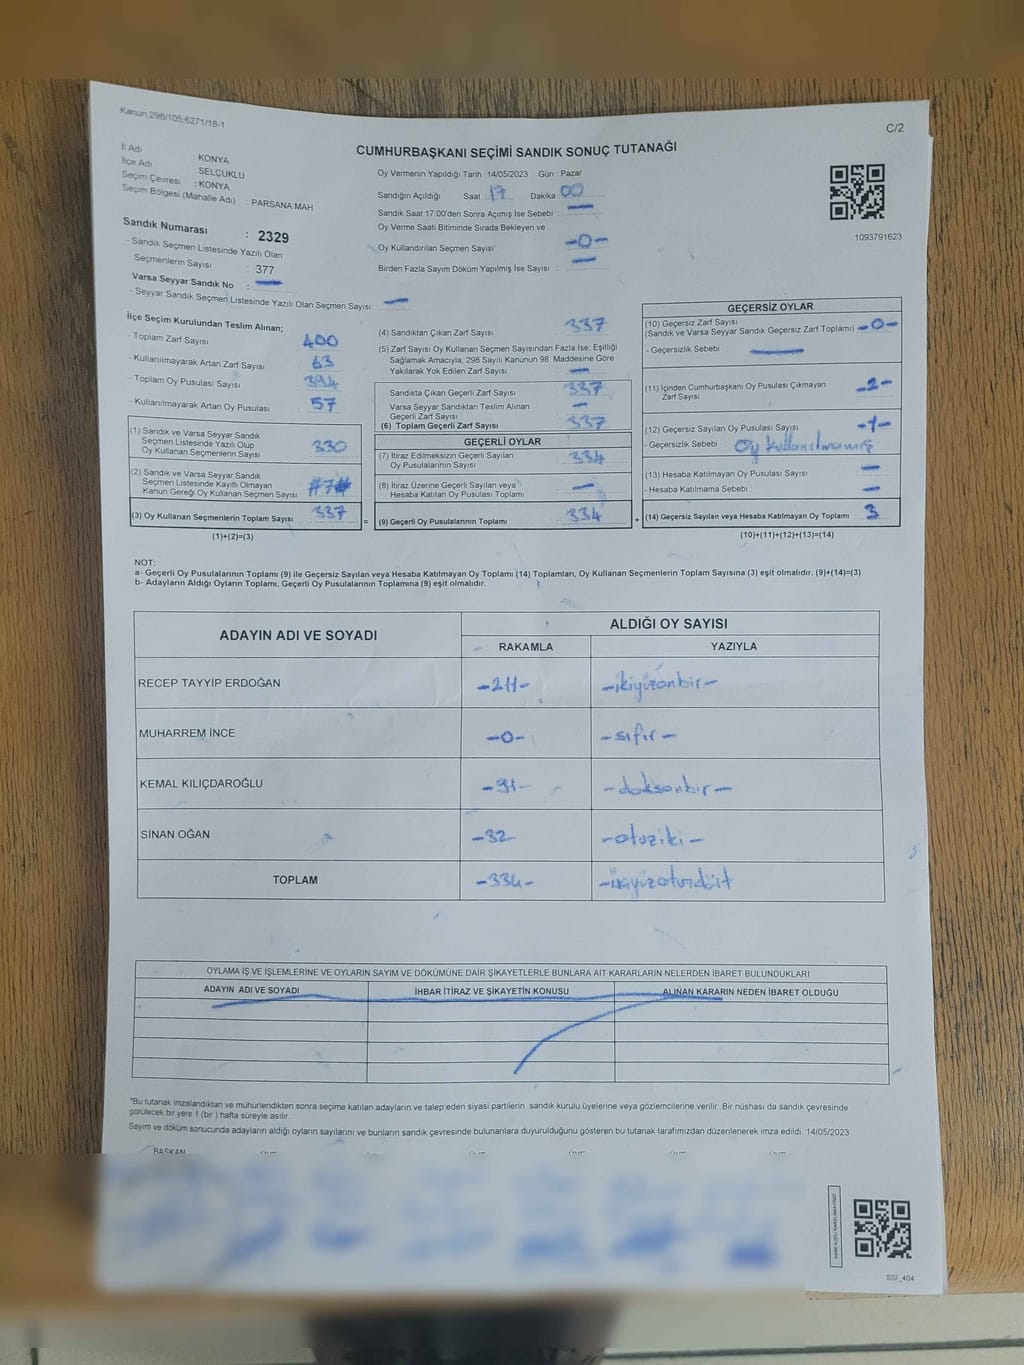 Kanun:298/105;6271/18-1
C/2
CUMHURBAŞKANI SEÇİMİ SANDIK SONUÇ TUTANAĞI
İl Adı : KONYA
İlçe Adı : SELÇUKLU
Seçim Çevresi : KONYA
Seçim Bölgesi (Mahalle Adı) : PARSANA MAH
Sandık Numarası : 2329
- Sandık Seçmen Listesinde Yazılı Olan
Seçmenlerin Sayısı : 377
Varsa Seyyar Sandık No :
- Seyyar Sandık Seçmen Listesinde Yazılı Olan Seçmen Sayısı:
Oy Vermenin Yapıldığı Tarih :14/05/2023 Gün : Pazar
Sandığın Açıldığı Saat : 17 Dakika : 00
Sandık Saat 17:00'den Sonra Açımış İse Sebebi :
Oy Verme Saati Bitiminde Sırada Bekleyen ve
Oy Kullandırılan Seçmen Sayısı: -0-
Birden Fazla Sayım Döküm Yapılmış İse Sayısı :
1093791623
İlçe Seçim Kurulundan Teslim Alınan;
- Toplam Zarf Sayısı 400
- Kullanılmayarak Artan Zarf Sayısı 63
- Toplam Oy Pusulası Sayısı 394
- Kullanılmayarak Artan Oy Pusulası 57
(1) Sandık ve Varsa Seyyar Sandık
Seçmen Listesinde Yazılı Olup
Oy Kullanan Seçmenlerin Sayısı 330
(2) Sandık ve Varsa Seyyar Sandık
Seçmen Listesinde Kayıtlı Olmayan
Kanun Gereği Oy Kullanan Seçmen Sayısı #7#
(3) Oy Kullanan Seçmenlerin Toplam Sayısı 337
(1)+(2)=(3)
=
(4) Sandıktan Çıkan Zarf Sayısı 337
(5) Zarf Sayısı Oy Kullanan Seçmen Sayısından Fazla İse, Eşitliği
Sağlamak Amacıyla; 298 Sayılı Kanunun 98. Maddesine Göre
Yakılarak Yok Edilen Zarf Sayısı
Sandıkta Çıkan Geçerli Zarf Sayısı 337
Varsa Seyyar Sandıktan Teslim Alınan
Geçerli Zarf Sayısı
(6) Toplam Geçerli Zarf Sayısı 337
GEÇERLİ OYLAR
(7) İtiraz Edilmeksizin Geçerli Sayılan
Oy Pusulalarının Sayısı 334
(8) İtiraz Üzerine Geçerli Sayılan veya
Hesaba Katılan Oy Pusulası Toplamı
(9) Geçerli Oy Pusulalarının Toplamı 334
+
GEÇERSİZ OYLAR
(10) Geçersiz Zarf Sayısı
(Sandık ve Varsa Seyyar Sandık Geçersiz Zarf Toplamı) -0-
- Geçersizlik Sebebi :
(11) İçinden Cumhurbaşkanı Oy Pusulası Çıkmayan
Zarf Sayısı -2-
(12) Geçersiz Sayılan Oy Pusulası Sayısı -1-
- Geçersizlik Sebebi : Oy kullanılmamış
(13) Hesaba Katılmayan Oy Pusulası Sayısı
- Hesaba Katılmama Sebebi :
(14) Geçersiz Sayılan veya Hesaba Katılmayan Oy Toplamı 3
(10)+(11)+(12)+(13)=(14)
NOT:
a- Geçerli Oy Pusulalarının Toplamı (9) ile Geçersiz Sayılan veya Hesaba Katılmayan Oy Toplamı (14) Toplamları, Oy Kullanan Seçmenlerin Toplam Sayısına (3) eşit olmalıdır. (9)+(14)=(3)
b- Adayların Aldığı Oyların Toplamı, Geçerli Oy Pusulalarının Toplamına (9) eşit olmalıdır.
ADAYIN ADI VE SOYADI ALDIĞI OY SAYISI
RAKAMLA YAZIYLA
RECEP TAYYİP ERDOĞAN -211- -ikiyüzonbir-
MUHARREM İNCE -0- -sıfır-
KEMAL KILIÇDAROĞLU -91- -doksanbir-
SİNAN OĞAN -32- -otuziki-
TOPLAM -334- -üçyüzotuzdört
OYLAMA İŞ VE İŞLEMLERİNE VE OYLARIN SAYIM VE DÖKÜMÜNE DAİR ŞİKAYETLERLE BUNLARA AİT KARARLARIN NELERDEN İBARET BULUNDUKLARI
ADAYIN ADI VE SOYADI İHBAR İTİRAZ VE ŞİKAYETİN KONUSU ALINAN KARARIN NEDEN İBARET OLDUĞU
*Bu tutanak imzalandıktan ve mühürlendikten sonra seçime katılan adayların ve talep eden siyasi partilerin sandık kurulu üyelerine veya gözlemcilerine verilir. Bir nüshası da sandık çevresinde
görülecek bir yere 1 (bir ) hafta süreyle asılır.
Sayım ve döküm sonucunda adayların aldığı oyların sayılarını ve bunların sandık çevresinde bulunanlara duyurulduğunu gösteren bu tutanak tarafımızdan düzenlenerek imza edildi. 14/05/2023
BAŞKAN
SSİ_404